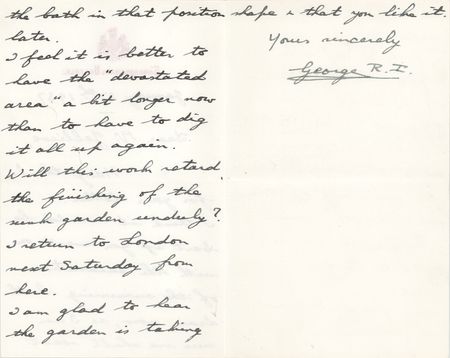 the bath in that position
later.
I feel it is better to
have the "devastated
area" a bit longer now
than to have to dig
it all up again.
Will this work retard
the finishing of the
sunk garden unduly?
I return to London
next Saturday from
here.
I am glad to hear
the garden is taking
shape & that you like it.
Yours sincerely
George R.I.